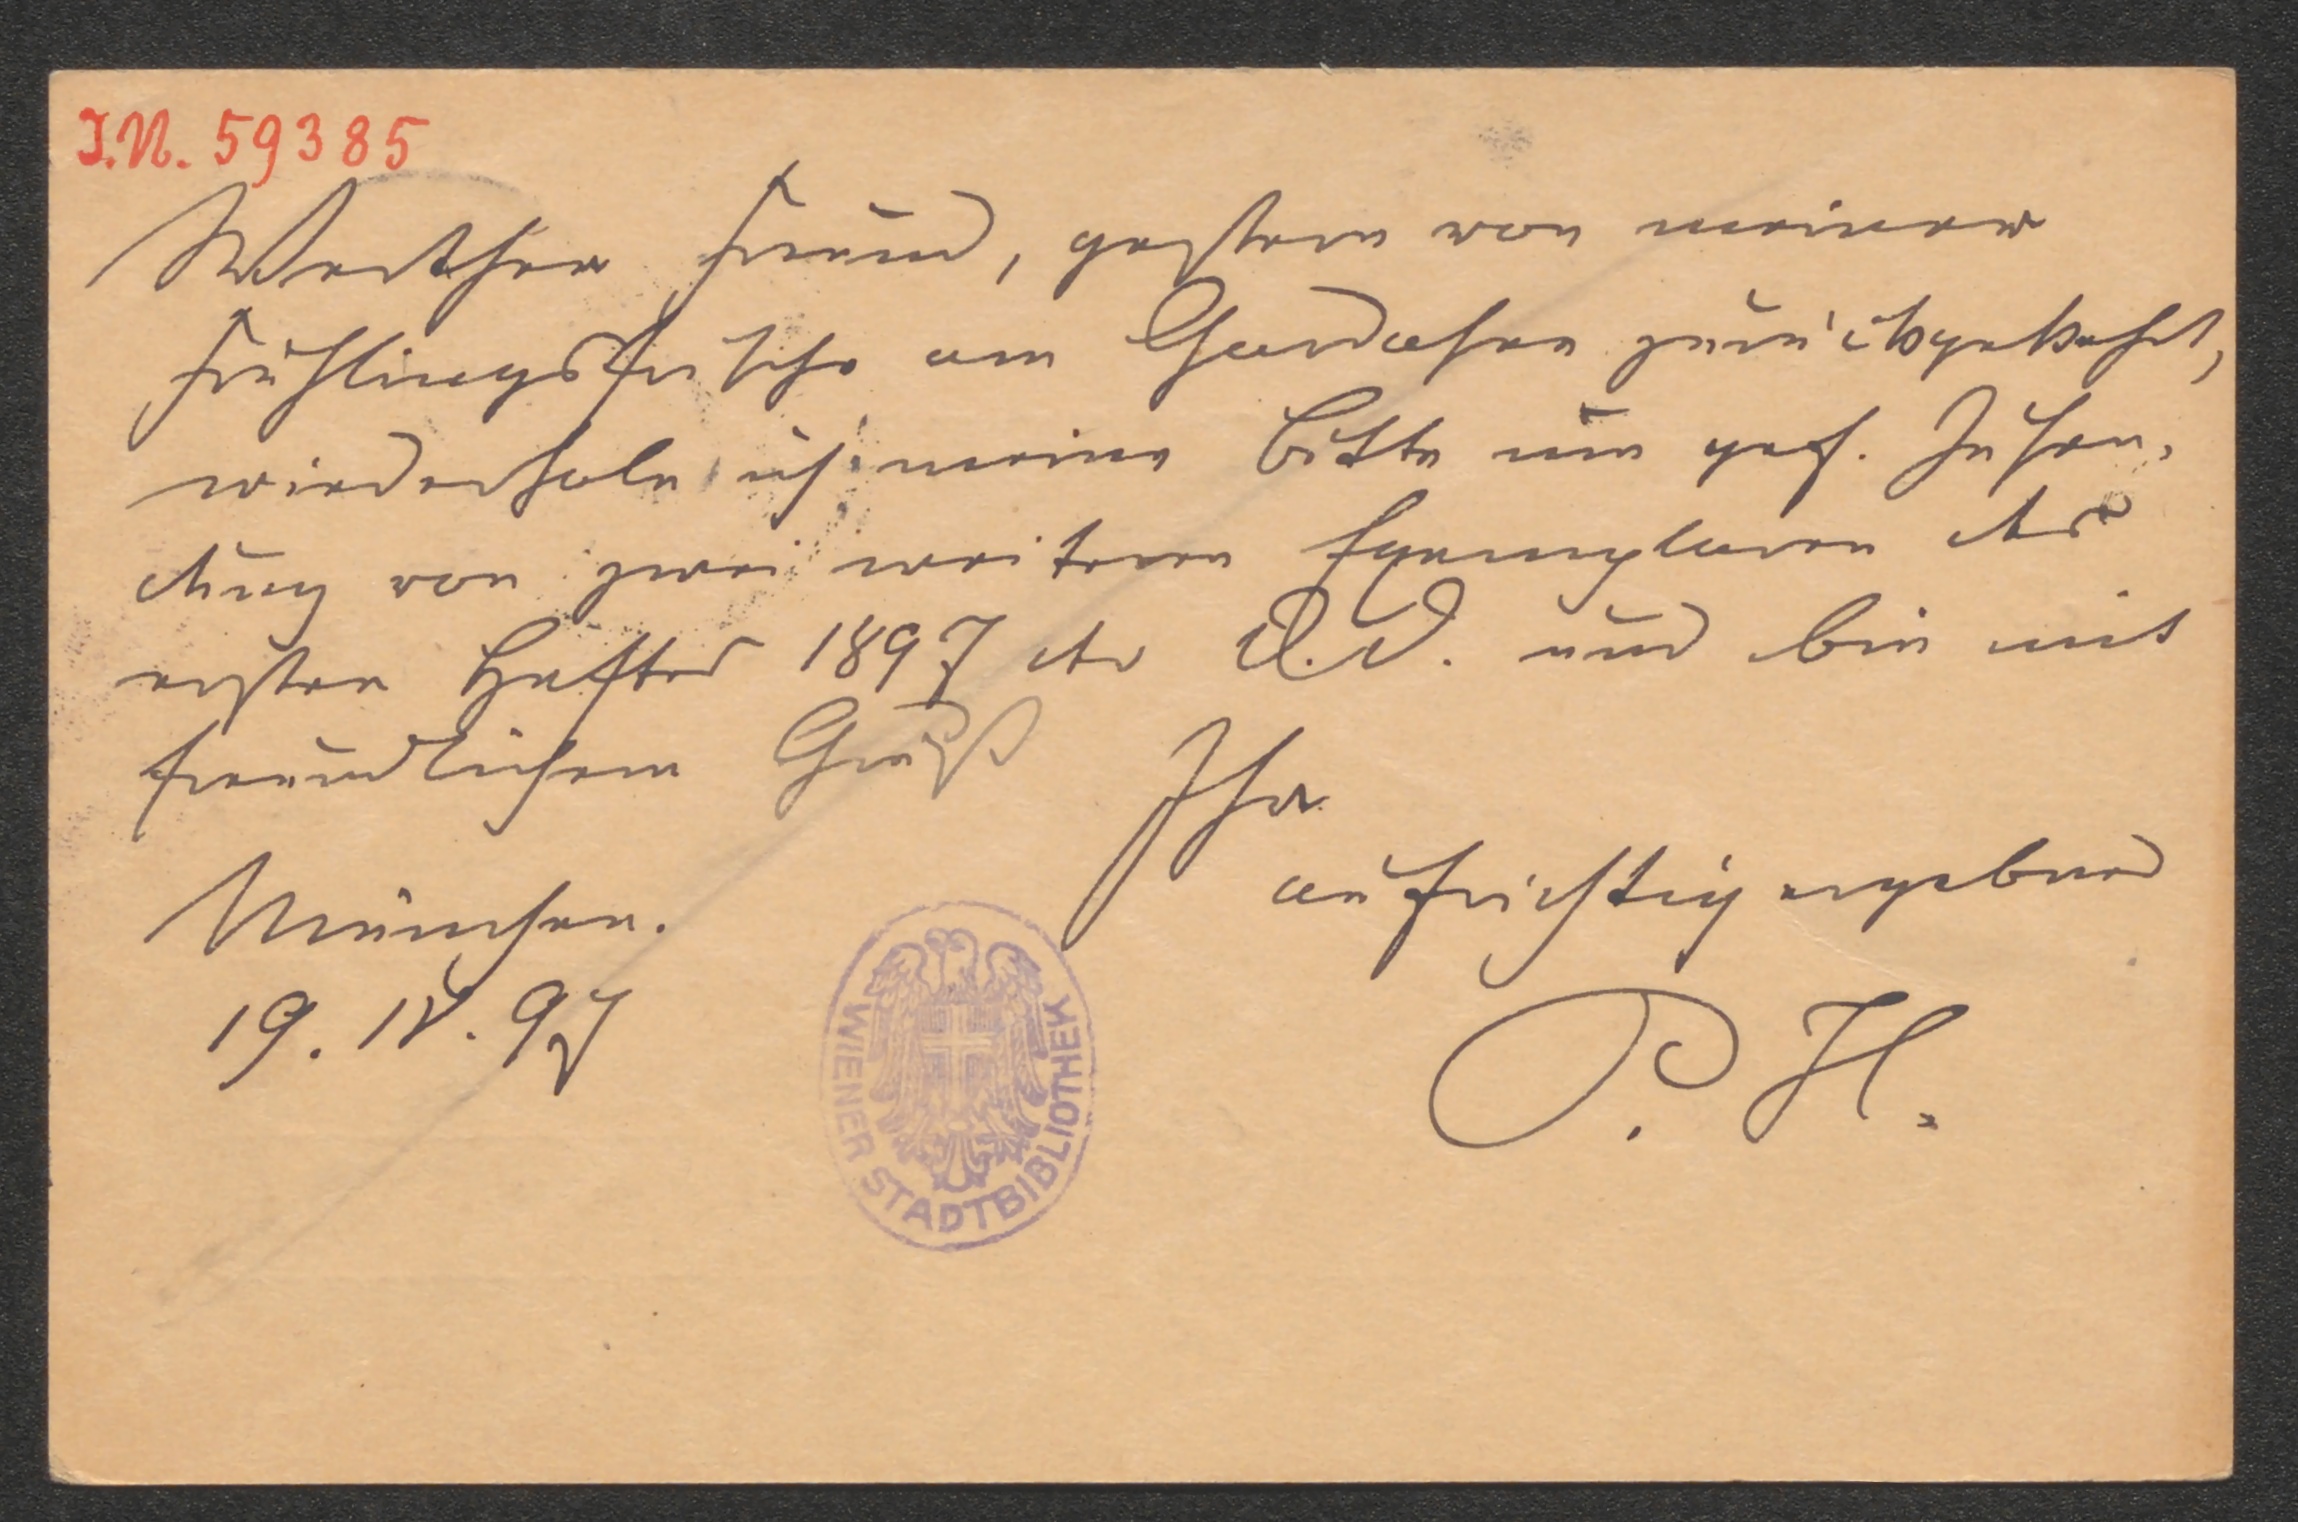 I.N. 59385
Werther Freund, gestern von meiner
Frühlingsfrische am Gardasee zurückgekehrt,
wiederhole ich meine Bitte um gef. Zusen-
dung von zwei weiteren Exemplaren des
ersten Heftes 1897 der D.D. und bin mit
freundlichem Gruß
Ihr
aufrichtig ergebner
München.
19. IV. 97
P. H.
WIENER STADTBIBLIOTHEK